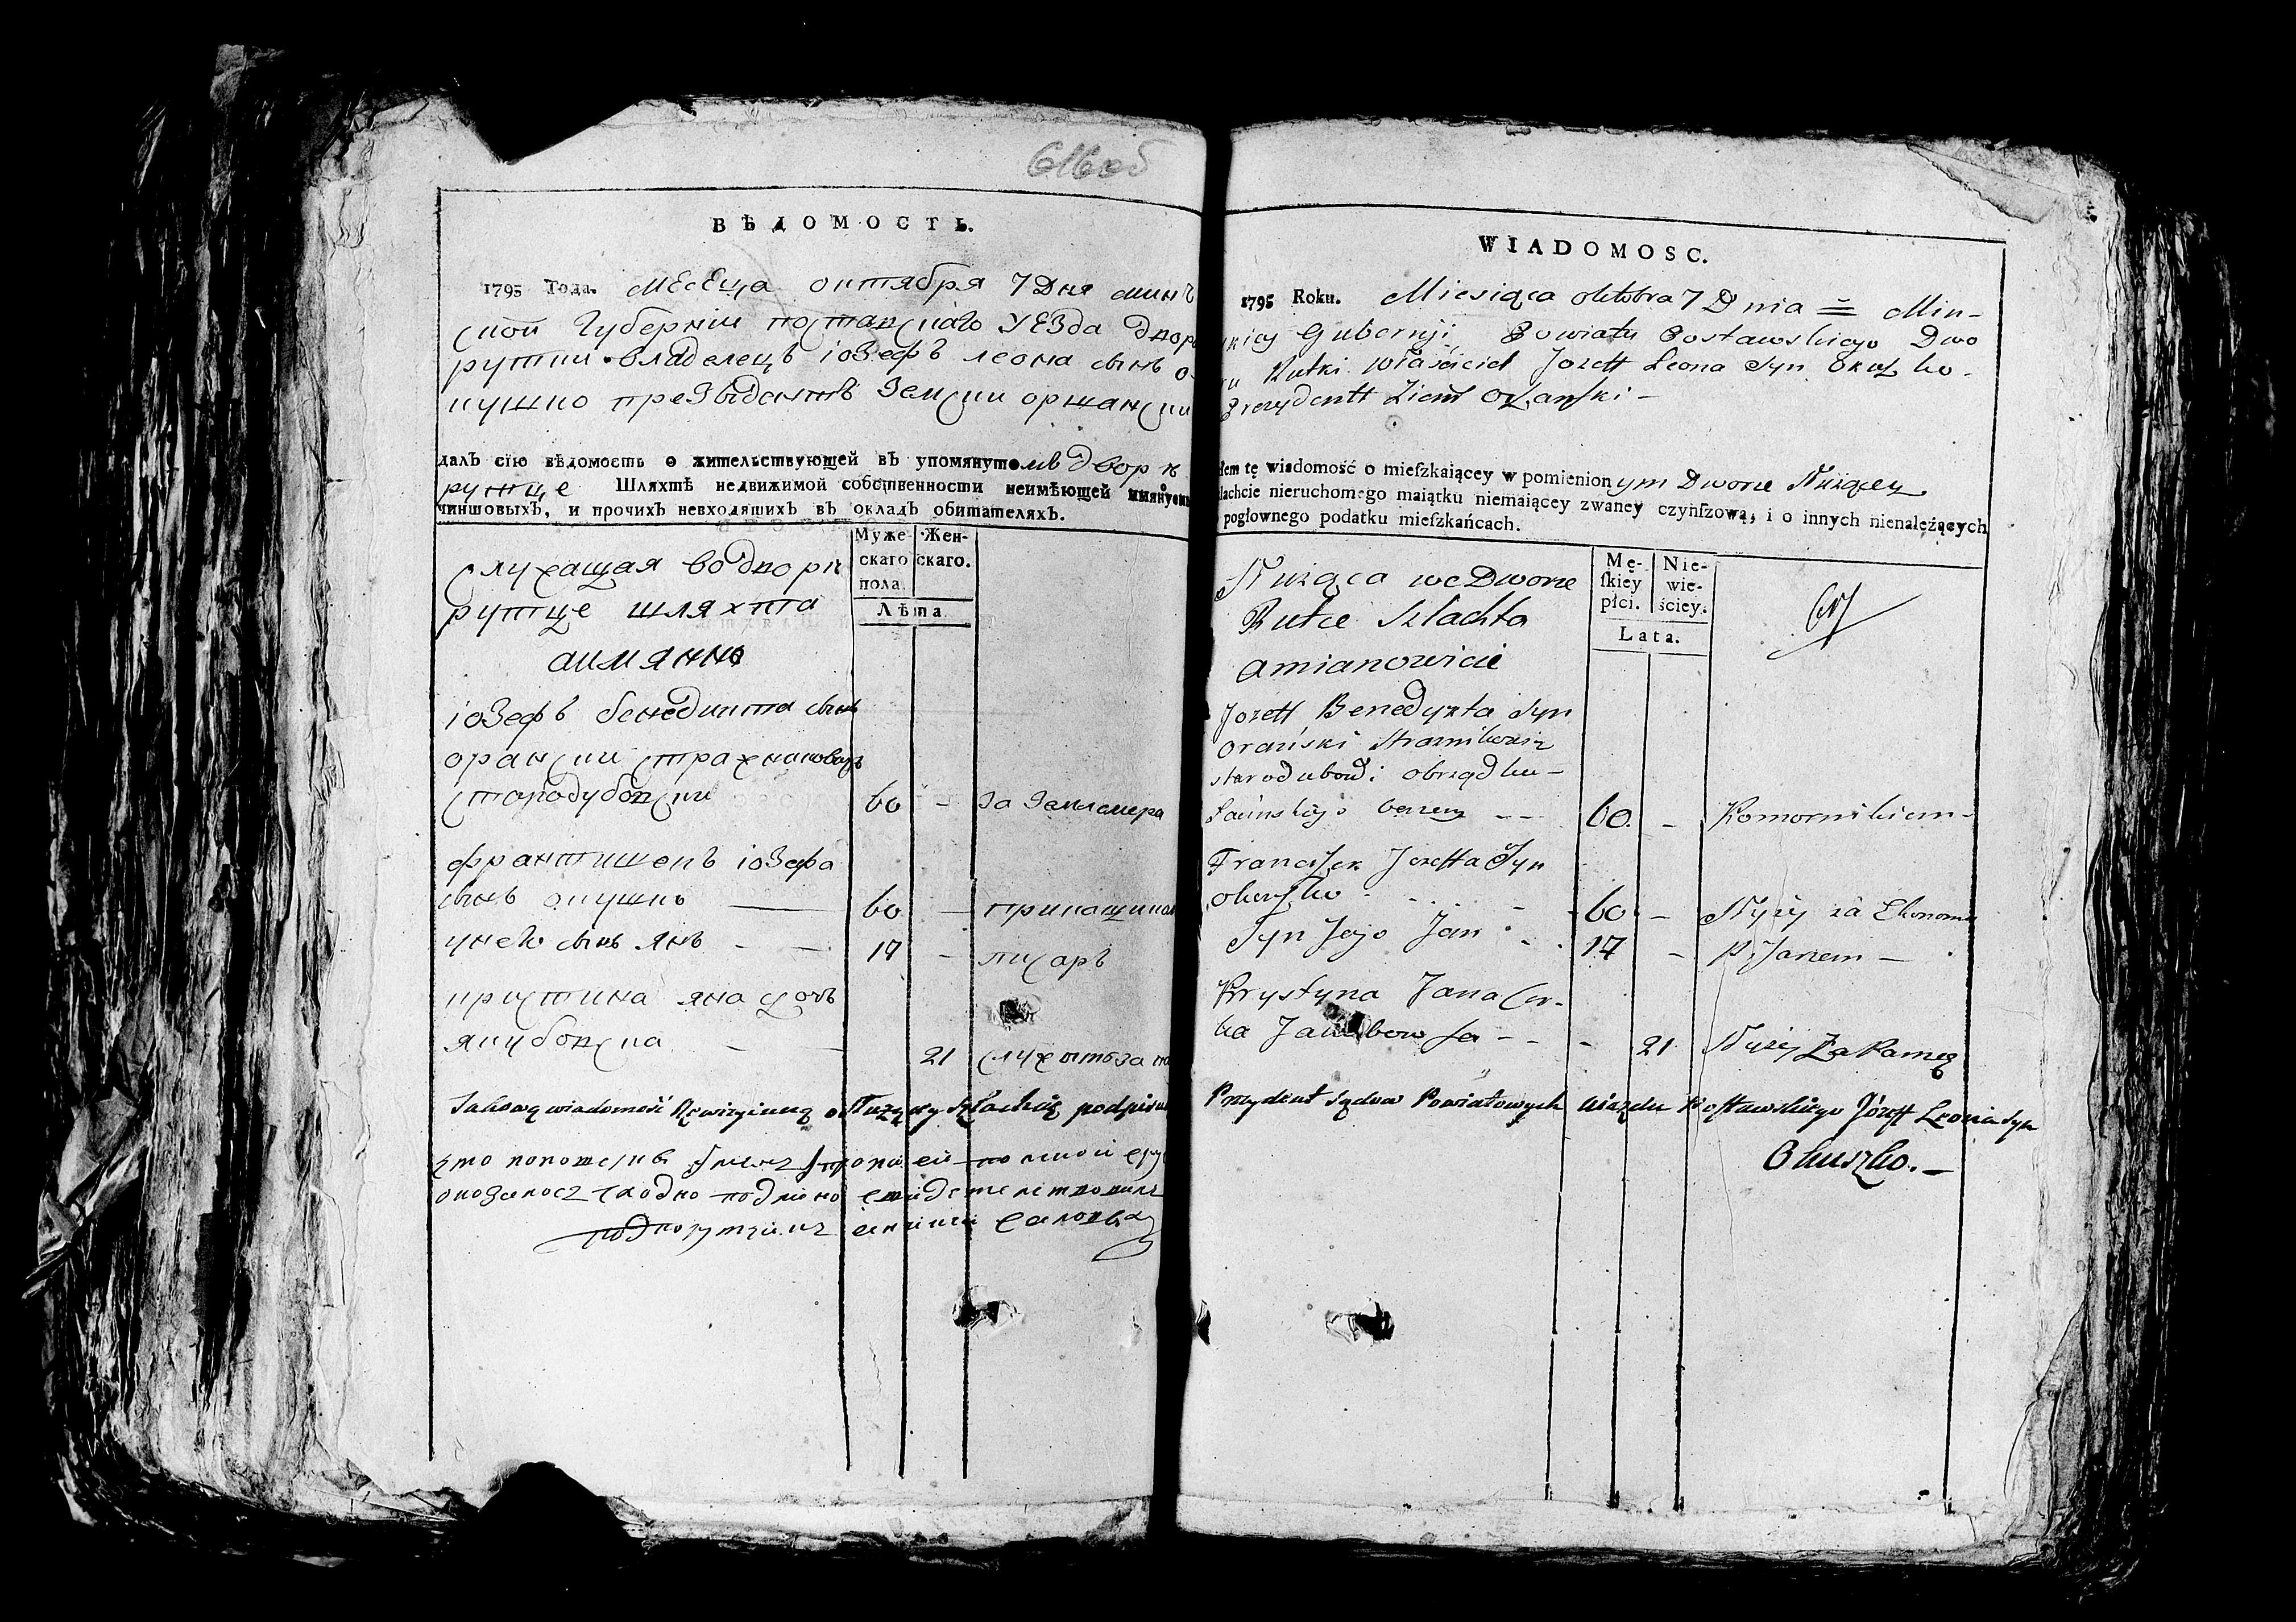 616об
ВѢДОМОСТЬ.
1795 Года. месеца октября 7 Дня минъ
ской Губернїи поставскаго уезда двора
рутки владелецъ іозефъ леона сынъ о
кушко презыдентъ земски оршански
далъ сїю вѣдомость о жительствующей въ упомянутомъ дворѣ
рутце Шляхтѣ недвижимой собственности неимѣющей имянуемых
чиншовыхъ, и прочихъ невходящихъ въ окладъ обитателяхъ.
Муже- Жен-
скаго скаго.
пола.
Лѣта
служащая водворѣ
рутце шляхта
аимянно
іозефъ бенедикта сынъ
орански стражниковичъ
стародубовски 60 — за замлемера
франтишекъ іозефа
сынъ окушко — 60 — прикащиком
унего сынъ янъ — 17 — писаръ
кристина яна дочь
якубовска — — 21 служитъ за
Takową wiadomość Rewizyiuną o Służącey Szlachcie podpisuię
подпорутчикъ
WIADOMOSC.
1795 Roku. Miesiąca oktobra 7 Dnia = Min-
skiey Gubernji, Powiatu Postawskiego Dwo
ru Rutki właściciel Jozeff Leona Syn Okuszko-
Prezydentt Ziems Orszanski -
łem tę wiadomość o mieſzkaiącey w pomienionym Dworze Służącey
ſzlachcie nieruchomego maiątku niemaiącey zwaney czynſzową, i o innych nienależących
pogłownego podatku mieſzkańcach.
Mę- Nie-
ſkiey wie-
płci. ściey.
Lata.
Służąca we Dworze
Rutce Szlachta
amianowicie
Jozeff Benedykta Syn
Orański Straznikowicz
starodubowſki obrządku -
60. - Komornikiem -
Franciszek Jozeffa Syn
okuszko - 60. - Służy za Ekonoma
Syn Jego Jan - 17 - Pisarzem -
Krystyna Jana Cor-
ka Jakubowska - - - 21 Służy za Pannę
Prezydent Sądow Powiatowych uiazdu Postawskiego Józeff Leona Syn
Okuszko. -